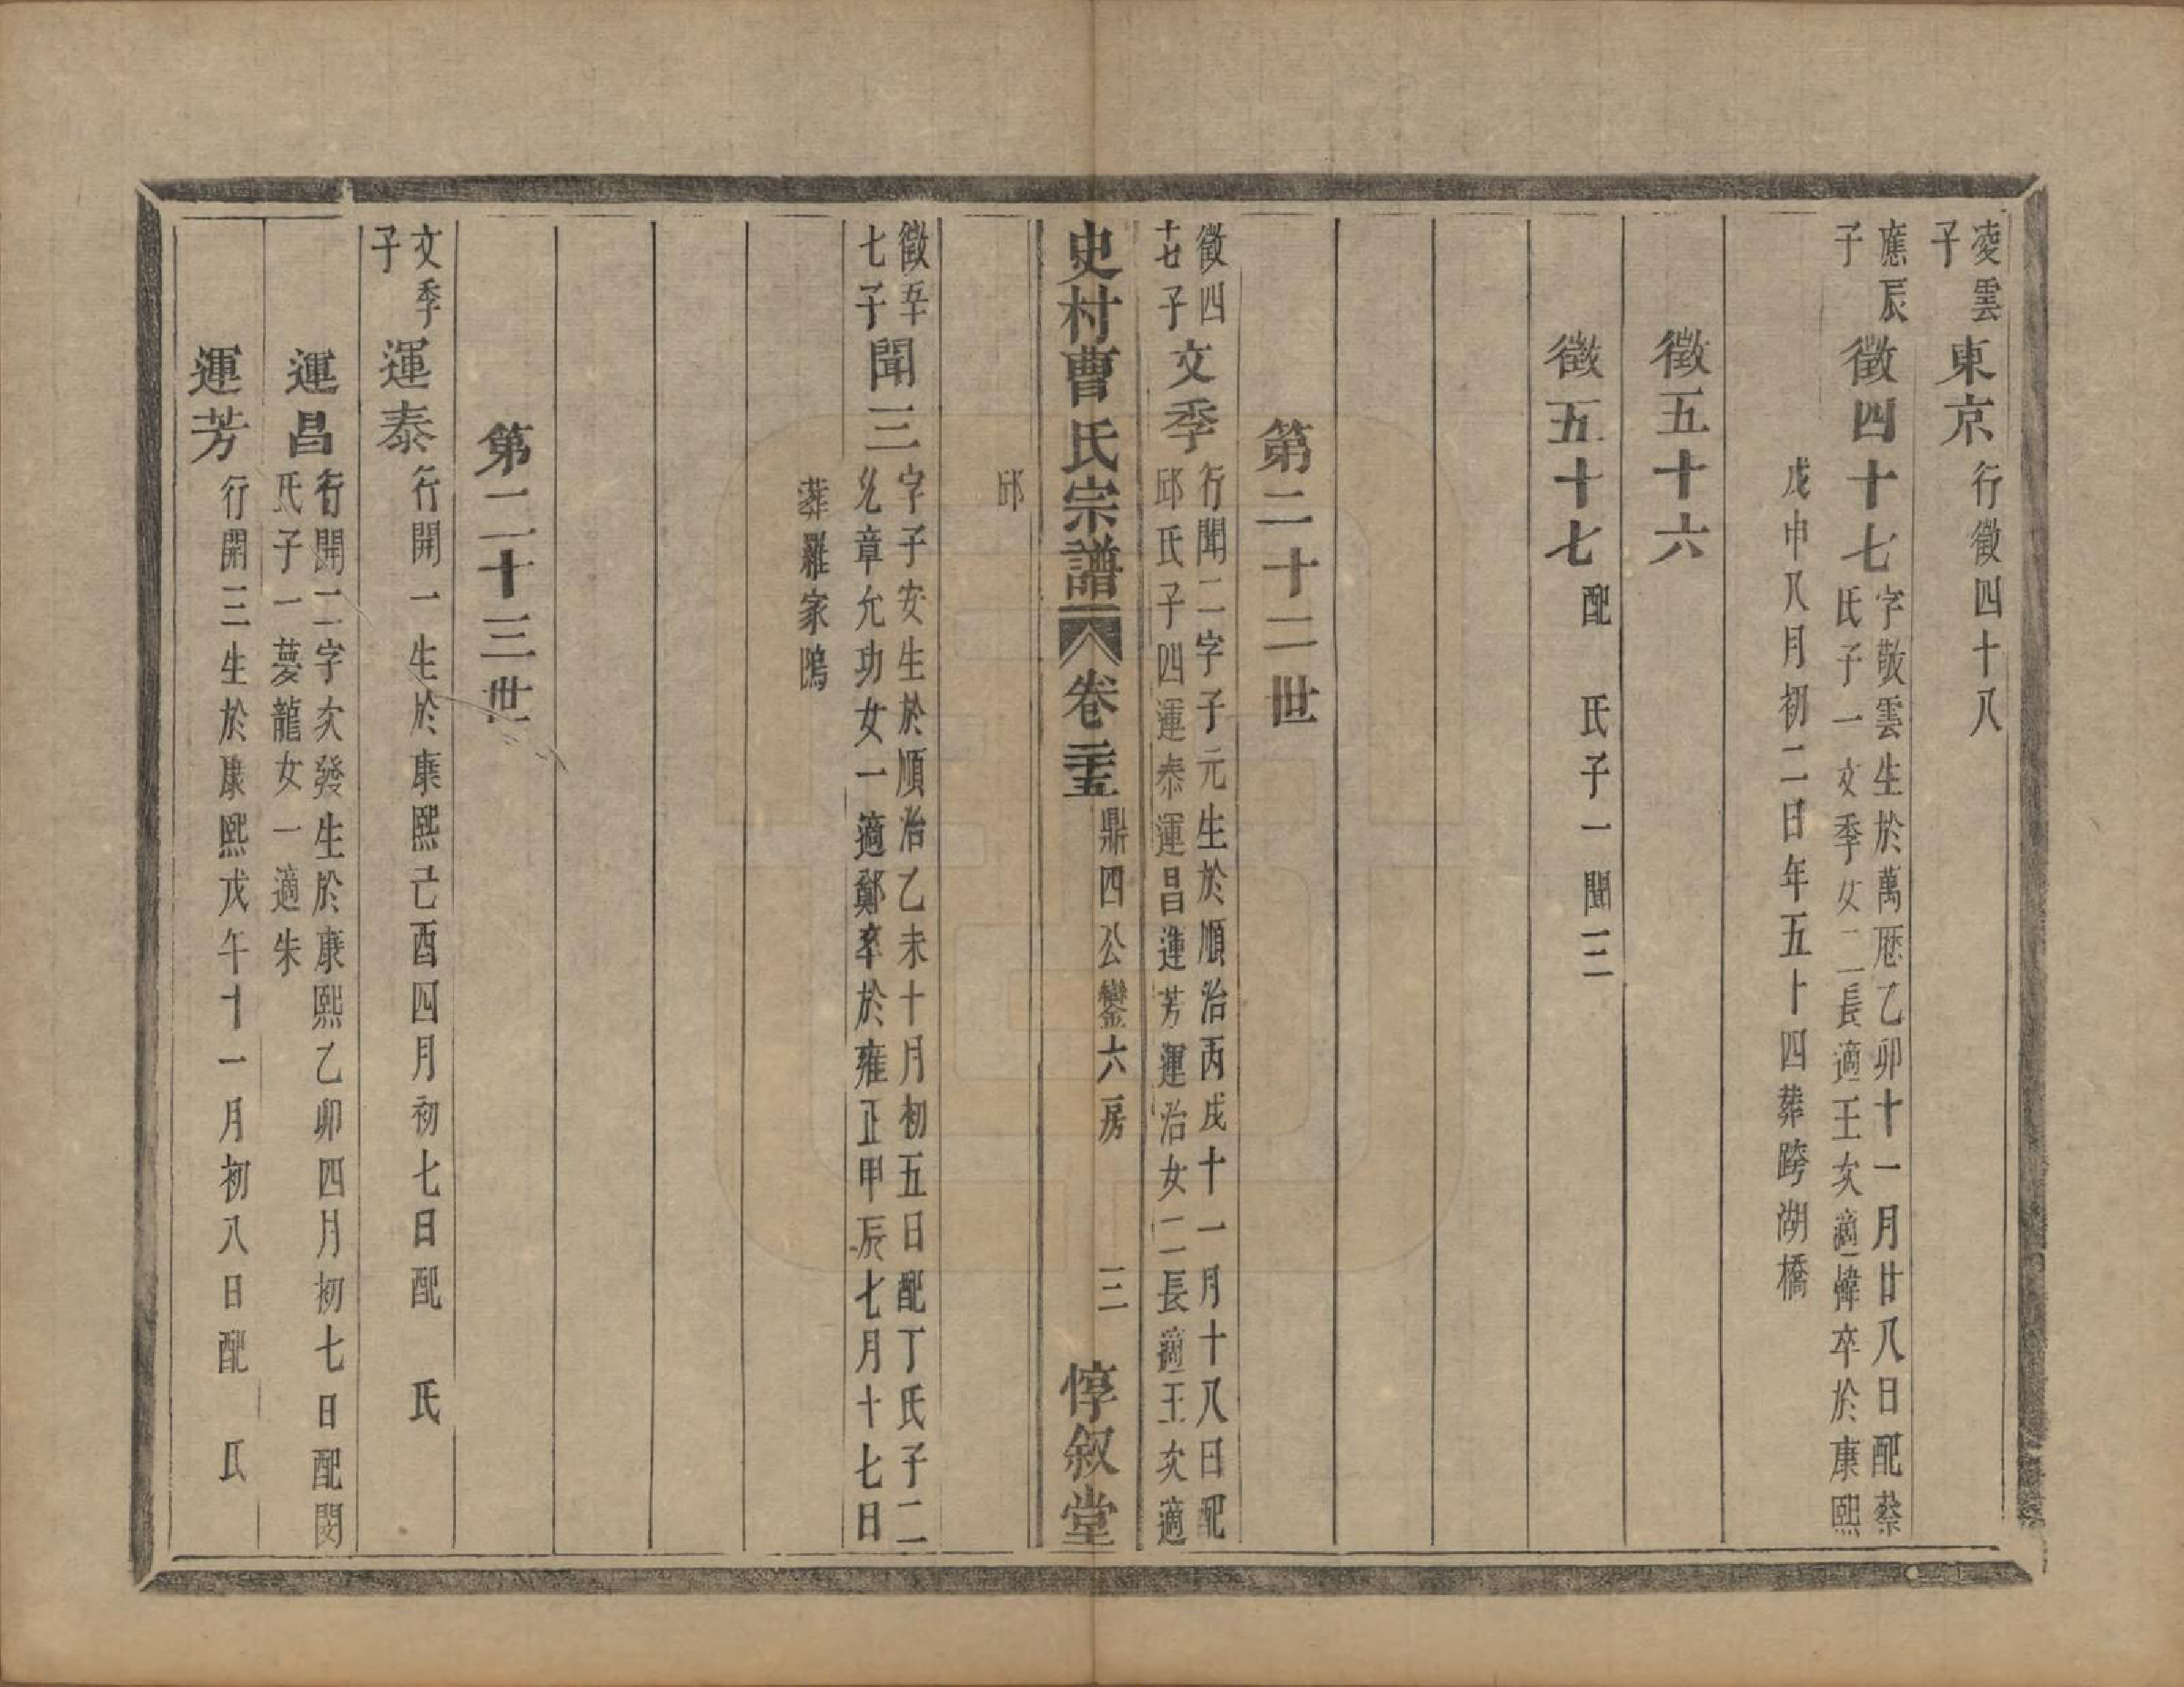 凌雲
子
東京
行徵四十八
應辰
子
徵四十七
字敬雲生於萬厯乙卯十一月廿八日配蔡
氏子一文季女二長適王次適幃卒於康熙
戊申八月初二日年五十四葬跨湖橋
徵五十六
徵五十七
配　氏子一聞三
第二十二世
徵四
十七子
文季
行聞二字子元生於順治丙戌十一月十八日配
邱氏子四運泰運昌運芳運治女二長適王次適
史村曹氏宗譜
卷二十五
鼎四公鑾六房
三
惇叙堂
邱
徵五十
七子
聞三
字子安生於順治乙未十月初五日配丁氏子二
允章允功女一適鄭卒於雍正甲辰七月十七日
葬羅家隖
第二十三世
文季
子
運泰
行開一生於康熙己酉四月初七日配　氏
運昌
行開二字次發生於康熙乙卯四月初七日配閔
氏子一夢龍女一適朱
運芳
行開三生於康熙戊午十一月初八日配　氏